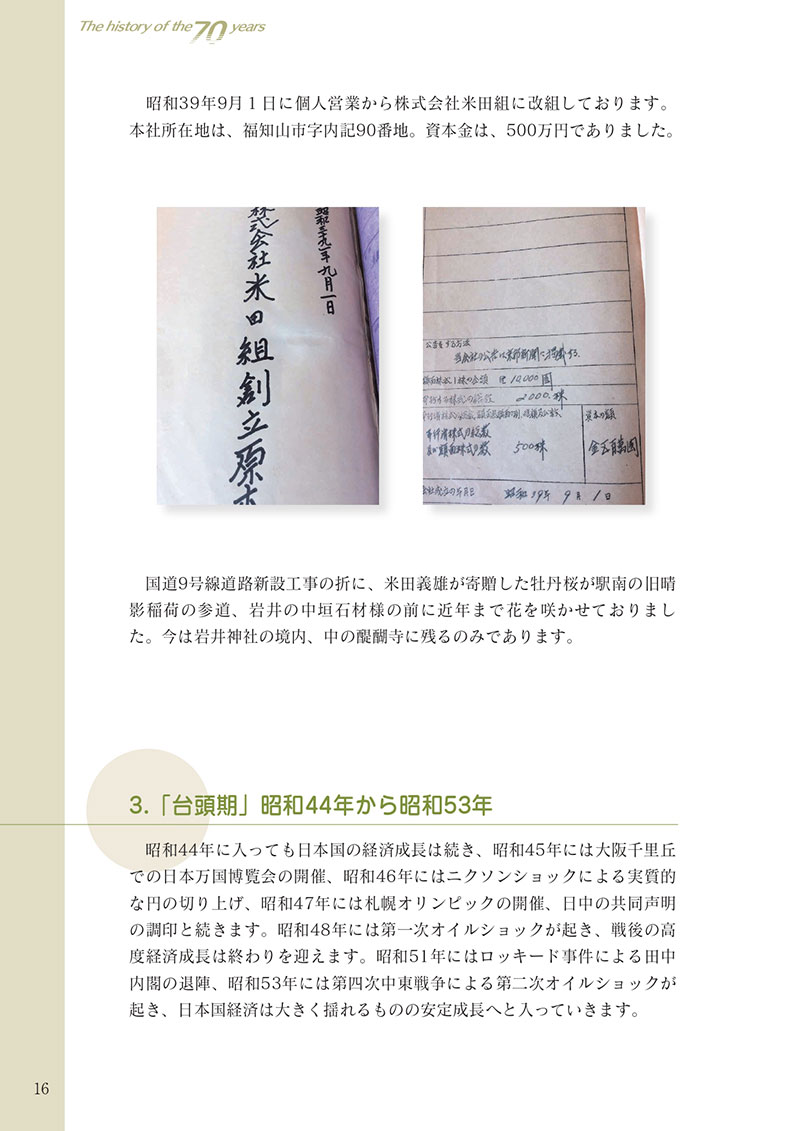 The history of the 70 years
昭和39年9月1日に個人営業から株式会社米田組に改組しております。
本社所在地は、福知山市字内記90番地。資本金は、500万円でありました。
昭和三十九年九月一日
株式会社米田組創立原本
公告をする方法
当会社の公告は京都新聞に掲載する。
額面株式1株の金額 金10,000圓
2000.株
資本の額
発行済株式の総数
500株
金五百萬圓
会社成立の年月日 昭和39年9月1日
国道9号線道路新設工事の折に、米田義雄が寄贈した牡丹桜が駅南の旧晴
影稲荷の参道、岩井の中垣石材様の前に近年まで花を咲かせておりまし
た。今は岩井神社の境内、中の醍醐寺に残るのみであります。
3.「台頭期」昭和44年から昭和53年
昭和44年に入っても日本国の経済成長は続き、昭和45年には大阪千里丘
での日本万国博覧会の開催、昭和46年にはニクソンショックによる実質的
な円の切り上げ、昭和47年には札幌オリンピックの開催、日中の共同声明
の調印と続きます。昭和48年には第一次オイルショックが起き、戦後の高
度経済成長は終わりを迎えます。昭和51年にはロッキード事件による田中
内閣の退陣、昭和53年には第四次中東戦争による第二次オイルショックが
起き、日本国経済は大きく揺れるものの安定成長へと入っていきます。
16